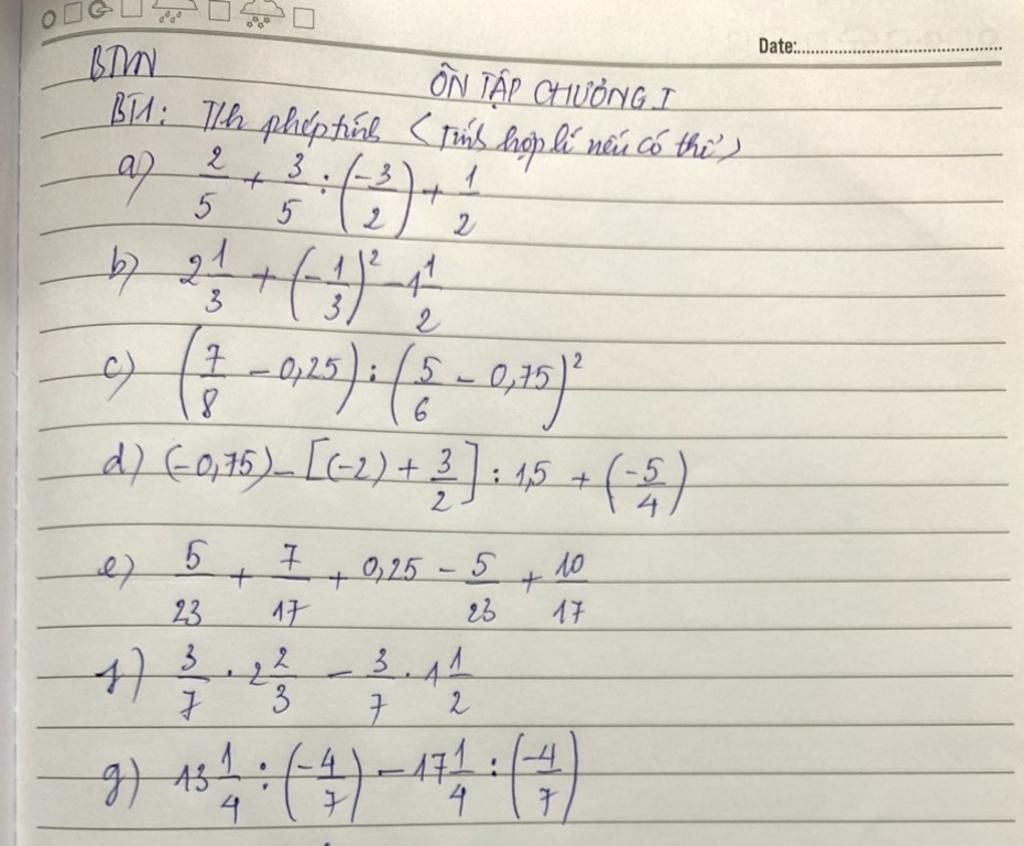 Date:
BTVN
ÔN TẬP CHƯƠNG I
BT1: T/h phép tính (Tính hợp lí nếu có thể)
a) 2/5 + 3/5 : (-3/2) + 1/2
b) 2 1/3 + (-1/3)² - 1 1/2
c) (7/8 - 0,25) : (5/6 - 0,75)²
d) (-0,75) - [(-2) + 3/2] : 1,5 + (-5/4)
e) 5/23 + 7/17 + 0,25 - 5/23 + 10/17
f) 3/7 . 2 2/3 - 3/7 . 1 1/2
g) 13 1/4 : (-4/7) - 17 1/4 : (-4/7)